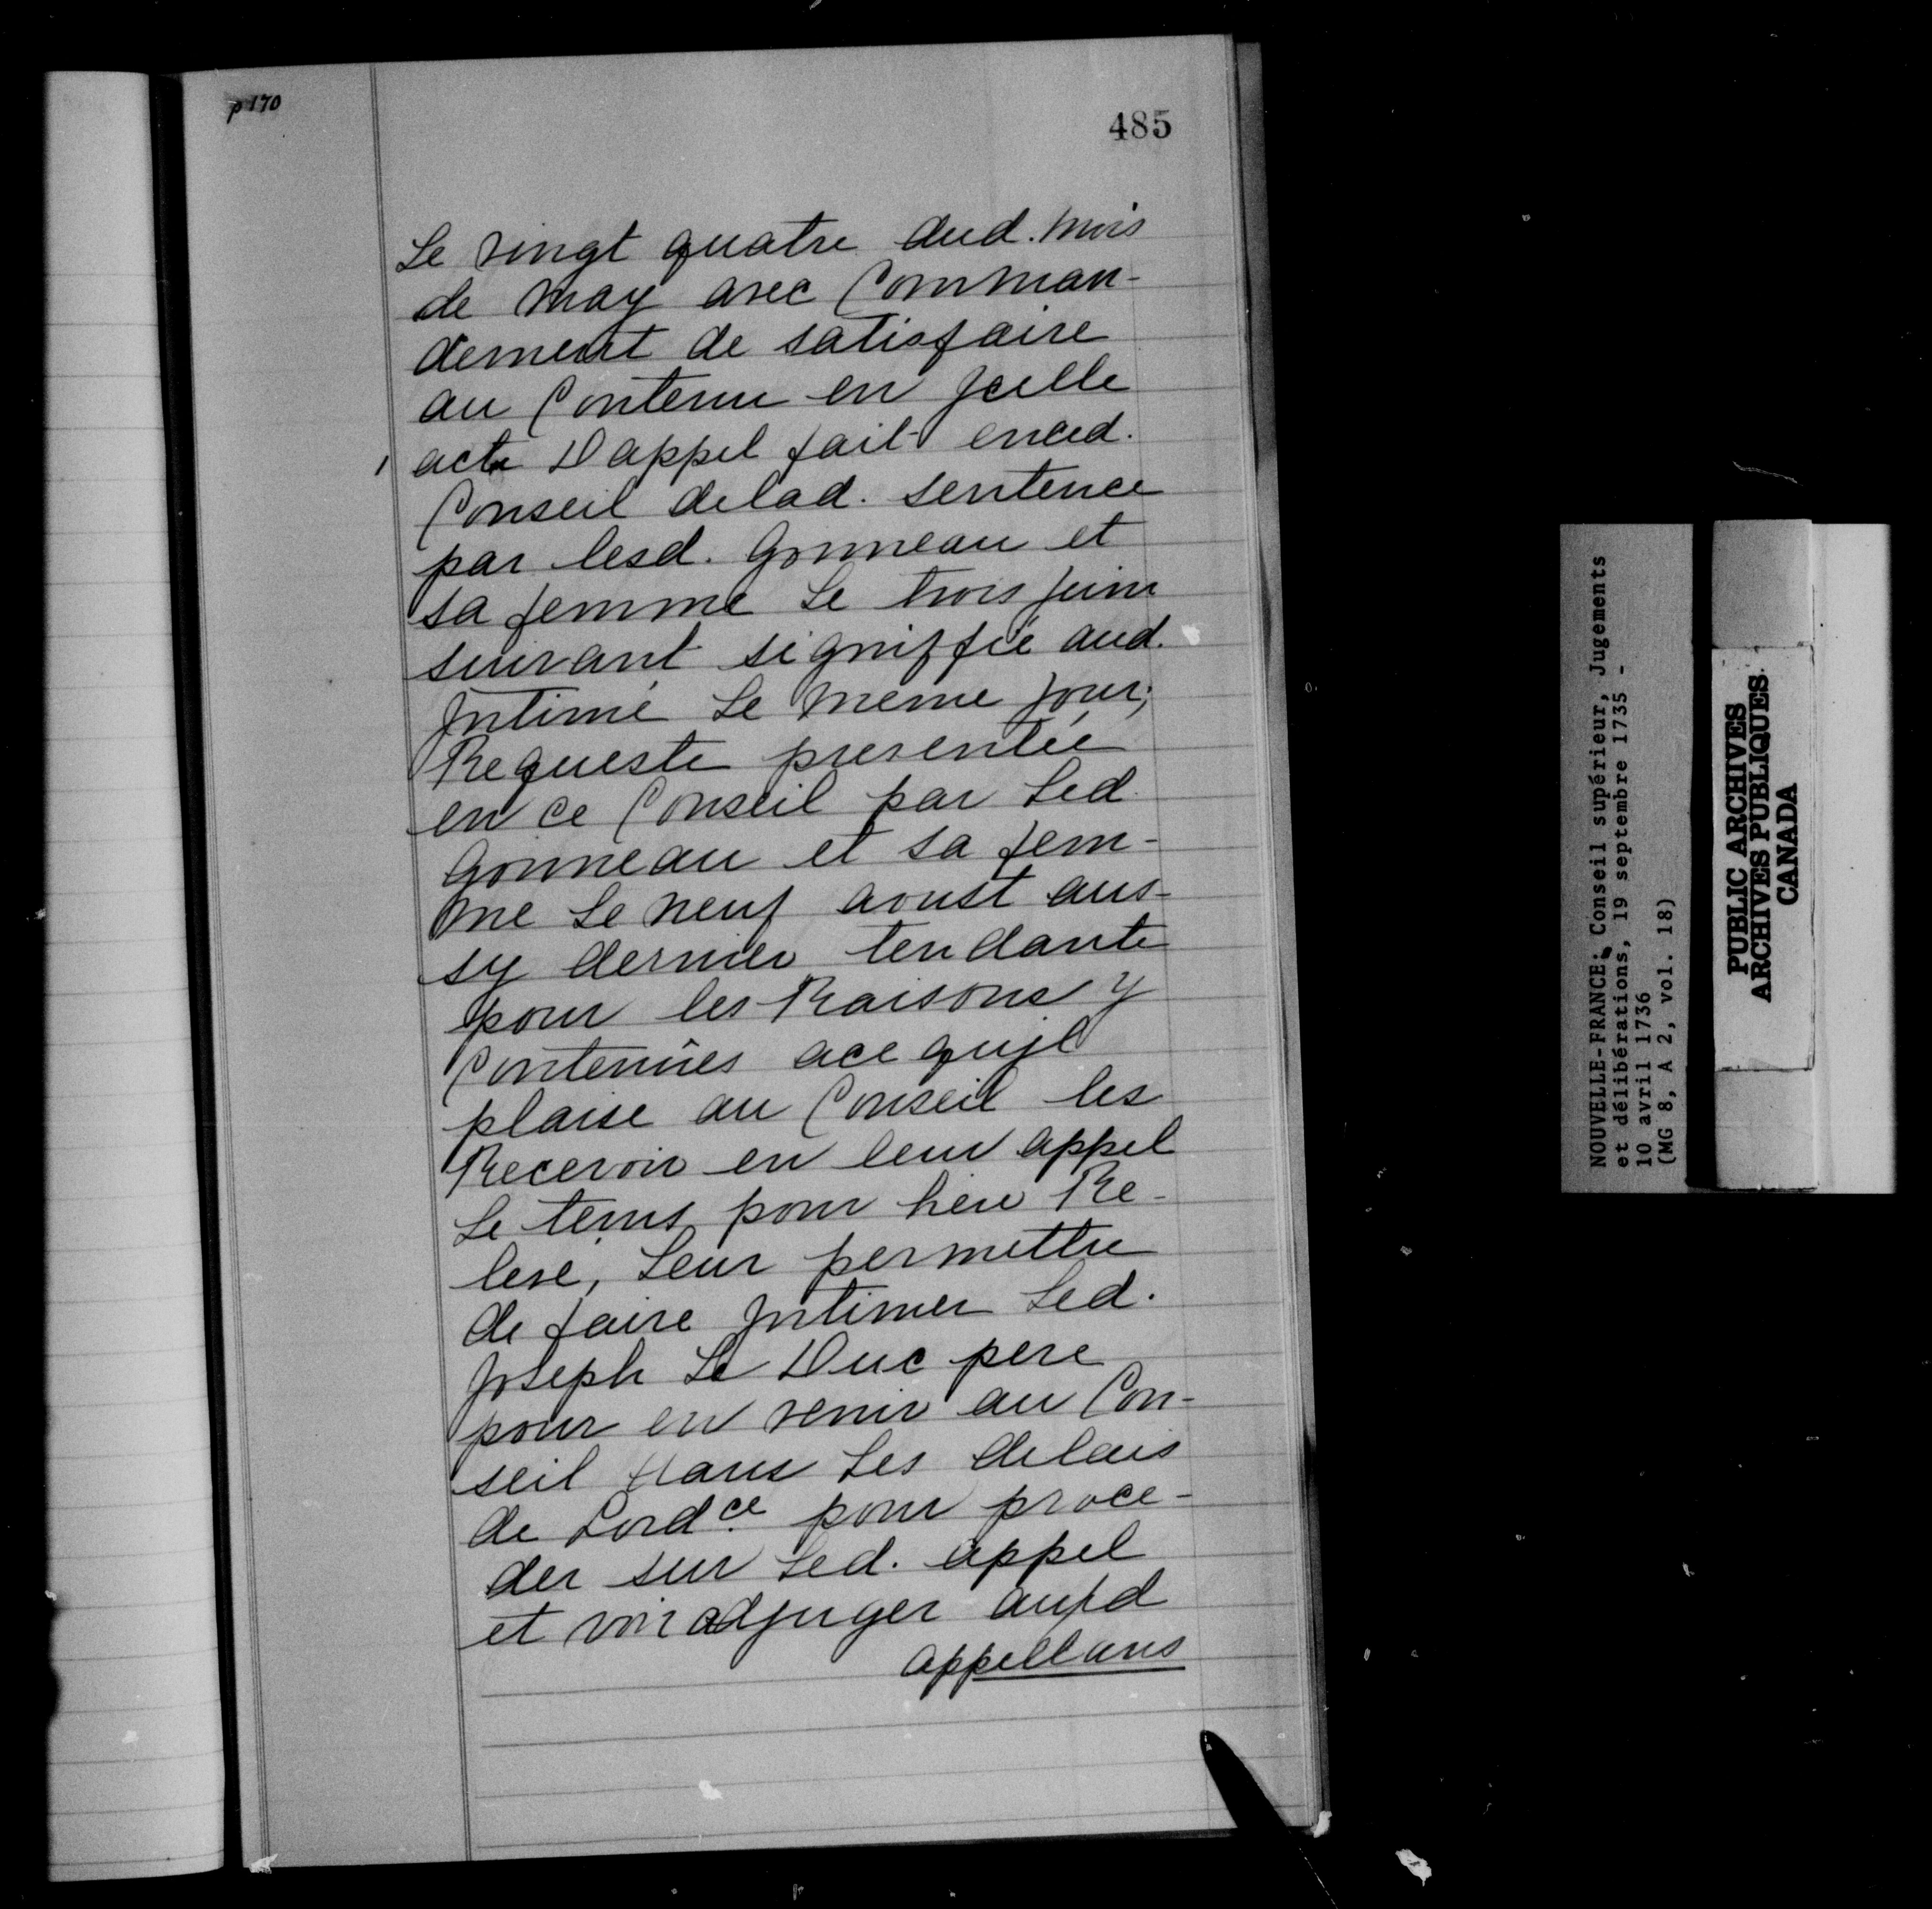 p 170
485
Le vingt quatre dud. mois
de may avec Comman-
dement de satisfaire
au Contenu en Jcelle
acte D appel fait enced.
Conseil delad. sentence
par lesd. Gonneau et
sa femme Le trois juin
suivant signiffiée aud.
Jntimé Le meme jour;
Requeste presentée
en ce Conseil par Led.
Gonneau et sa fem-
me Le neuf aoust aus-
sy dernier tendante
pour les Raisons y
Contenûes ace qujl
plaise au Conseil les
Recevoir en leur appel
Le tems pour bien Re-
levé, Leur permettre
de faire Jntimer Led.
Joseph Le Duc pere
pour en venir au Con-
seil dans Les delais
de Lord.ce pour proce-
der sur Led. appel
et voir adjuger auxd
appellans
NOUVELLE-FRANCE: Conseil supérieur, Jugements
et délibérations, 19 septembre 1735 -
10 avril 1736
(MG 8, A 2, vol. 18)
PUBLIC ARCHIVES
ARCHIVES PUBLIQUES
CANADA